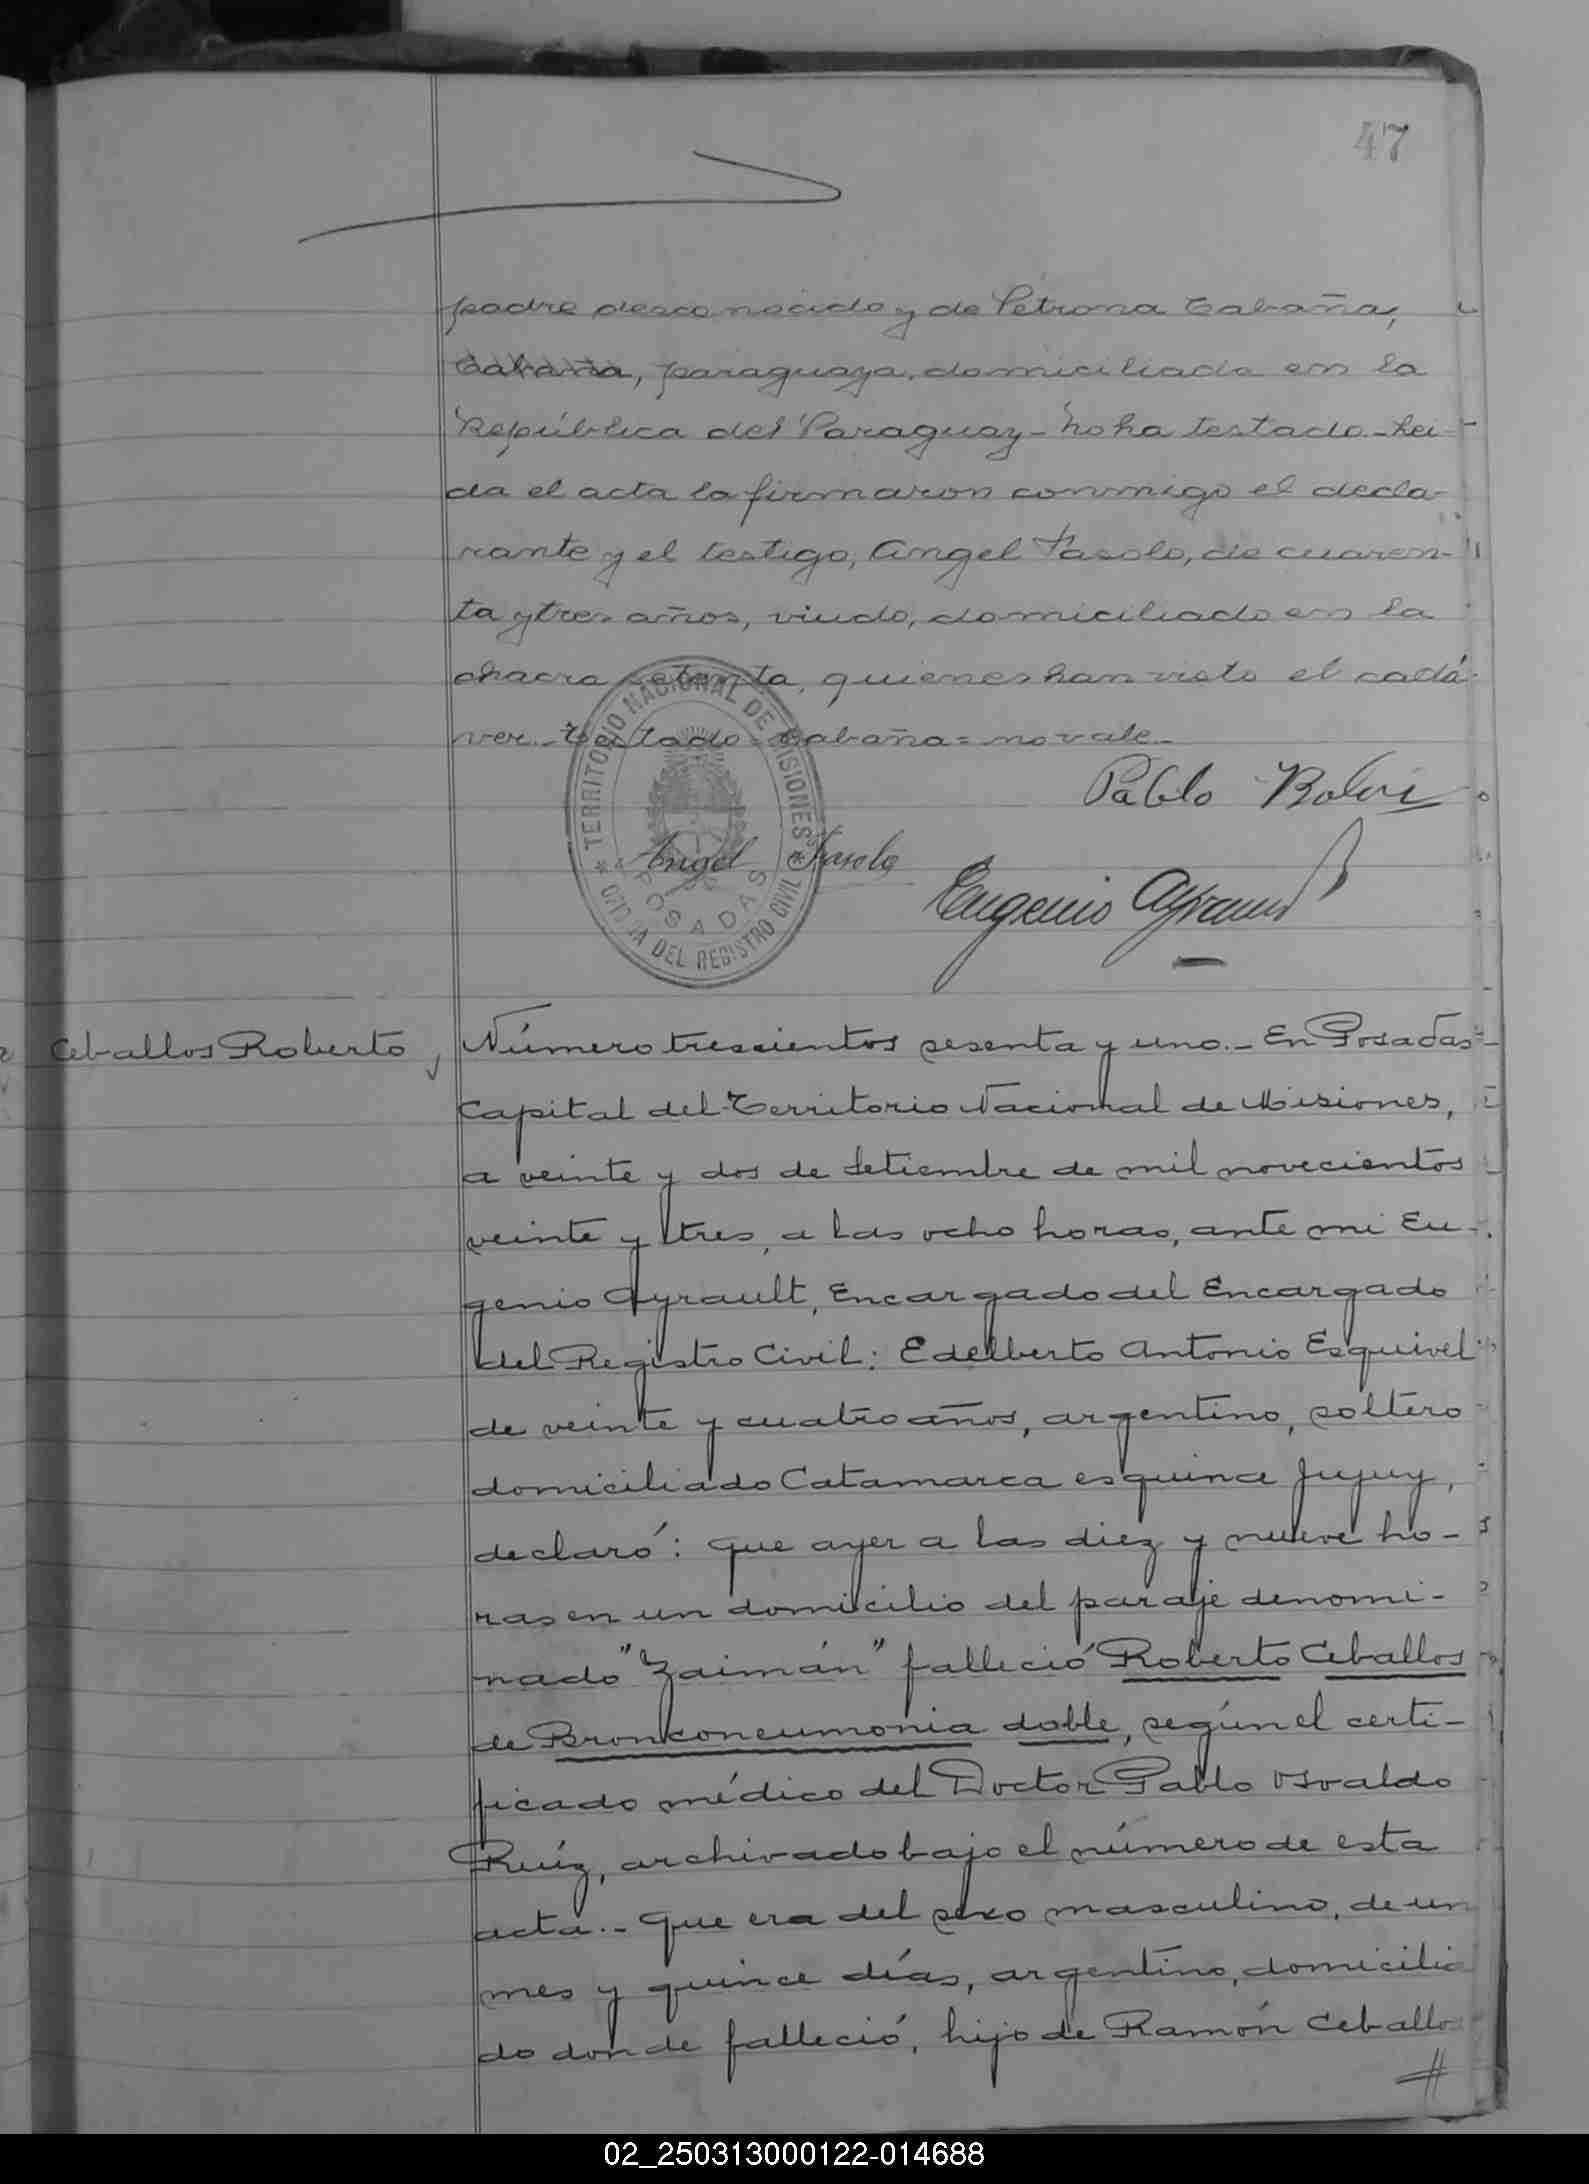 47
padre desconocido y de Petrona Cabaña,
Cabaña, paraguaya, domiciliada en la
República del Paraguay - No ha testado - Lei-
da el acta la firmaron conmigo el decla-
rante y el testigo, Angel Fasolo, de cuaren-
ta y tres años, viudo, domiciliado en la
chacra setenta, quienes han visto el cadá-
ver. - Testado = Cabaña = no vale. -
Pablo
Angel Fasolo
Eugenio Ayrault
TERRITORIO NACIONAL DE MISIONES
OFICINA DEL REGISTRO CIVIL
POSADAS
Ceballos Roberto
Número trescientos sesenta y uno. - En Posadas
Capital del Territorio Nacional de Misiones,
a veinte y dos de Setiembre de mil novecientos
veinte y tres, a las ocho horas, ante mi Eu-
genio Ayrault, Encargado del Encargado
del Registro Civil: Edelberto Antonio Esquivel
de veinte y cuatro años, argentino, soltero
domiciliado Catamarca esquina Jujuy,
declaró: que ayer a las diez y nueve ho-
ras en un domicilio del paraje denomi-
nado "Zaimán" falleció Roberto Ceballos
de Bronconeumonia doble, según el certi-
ficado médico del Doctor Pablo Osvaldo
Ruíz, archivado bajo el número de esta
acta. - Que era del sexo masculino, de un
mes y quince días, argentino, domicilia
do donde falleció, hijo de Ramón Ceballos
02_250313000122-014688